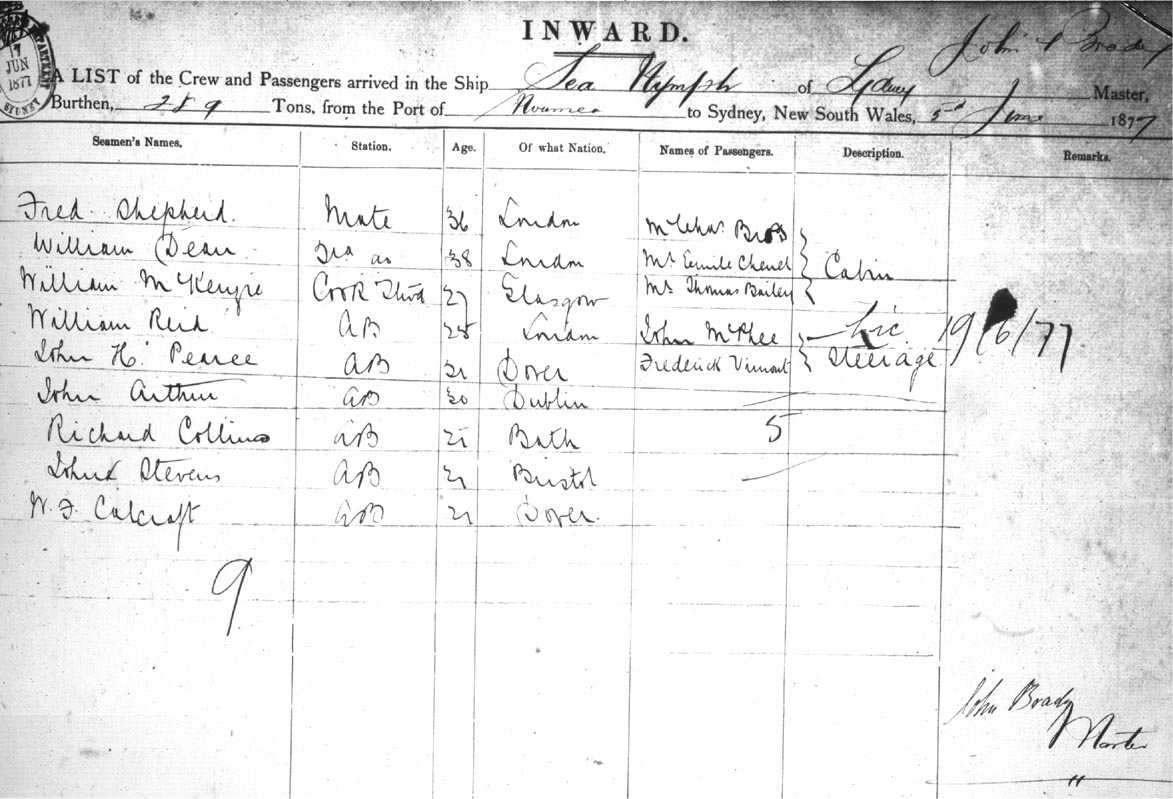 INWARD.
John Brady
17
JUN
1877
SYDNEY
A LIST of the Crew and Passengers arrived in the Ship Sea Nymph of Master,
Burthen, 289 Tons, from the Port of Noumea to Sydney, New South Wales, 5th June 1877
Seamen's Names. Station. Age. Of what Nation. Names of Passengers. Description. Remarks.
Fred Shepherd. Mate 36 London Mr Chas
William Dean 38 London Mr Emile Chenel Cabin
William McKenzie Cook 27 Glasgow Mr Thomas Bailey
William Reid AB 28 London John McPhee 19/6/77
John H. Pearce AB 21 Dover Frederick Vimont Steerage
John Arthur AB 30 Dublin
Richard Collins AB 21 Bath 5
John Stevens AB 21 Bristol
W. F. Calcraft AB 21 Dover.
9
John Brady
Master
"